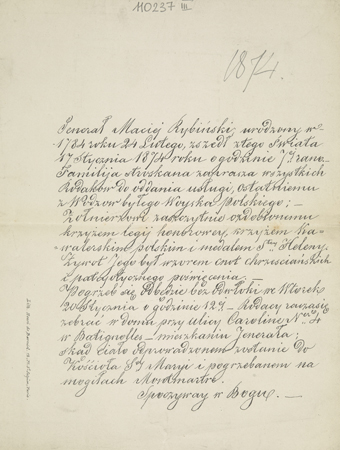 110237 III
1874.
Jenerał Maciej Rybiński, urodzony w
1784 roku 24 Lutego, zszedł z tego Świata
17 Stycznia 1874 roku o godzinie 7½ rana
Familija stroskana zaprasza wszystkich
Rodaków do oddania usługi, ostatniemu
z Wodzów byłego Woyska Polskiego; —
Żołnierzowi zaszczytnie ozdobionemu
krzyżem legij honorowey, krzyżem ka-
walerskim polskim i medalem Stey Heleny.
Żywot Jego był wzorem cnot chrzesciańskich
i patryotycznego poświęcenia. —
Pogrzeb się odbędzie bez odwłoki we Wtorek
20 Stycznia o godzinie 12ej — Rodacy raczą się
zebrać w domu przy ulicy Caroline No
w Batignolles — mieszkaniu Jenerała;
skąd ciało odprowadzonem zostanie do
Kościoła Stej Maryi i pogrzebanem na
mogiłach Montmartre.
Spoczyway w Bogu. —